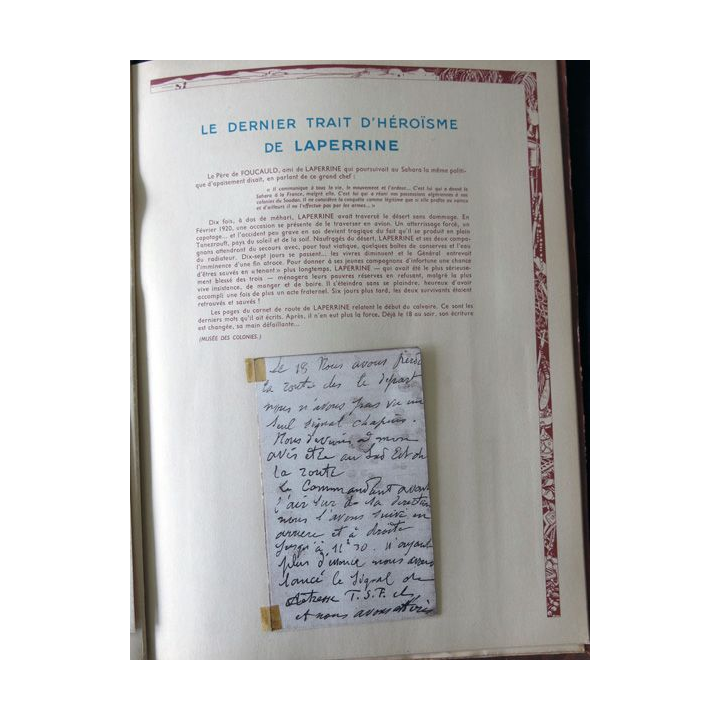 LE DERNIER TRAIT D'HÉROÏSME
DE LAPERRINE
Le Père de FOUCAULD, ami de LAPERRINE qui poursuivait au Sahara la même politi-
que d'apaisement disait, en parlant de ce grand chef :
« Il communique à tous la vie, le mouvement et l'ardeur... C'est lui qui a donné le
Sahara à la France, malgré elle. C'est lui qui a réuni nos possessions algériennes à nos
colonies du Soudan. Il ne considère la conquête comme légitime que si elle profite au vaincu
et d'ailleurs il ne l'effectue pas par les armes... »
Dix fois, à dos de méhari, LAPERRINE avait traversé le désert sans dommage. En
Février 1920, une occasion se présente de le traverser en avion. Un atterrissage forcé, un
capotage... et l'accident peu grave en soi devient tragique du fait qu'il se produit en plein
Tanezrouft, pays du soleil et de la soif. Naufragés du désert, LAPERRINE et ses deux compa-
gnons attendront du secours avec, pour tout viatique, quelques boîtes de conserves et l'eau
du radiateur. Dix-sept jours se passent... les vivres diminuent et le Général entrevoit
l'imminence d'une fin atroce. Pour donner à ses jeunes compagnons d'infortune une chance
d'êtres sauvés en « tenant » plus longtemps, LAPERRINE — qui avait été le plus sérieuse-
ment blessé des trois — ménagera leurs pauvres réserves en refusant, malgré la plus
vive insistance, de manger et de boire. Il s'éteindra sans se plaindre, heureux d'avoir
accompli une fois de plus un acte fraternel. Six jours plus tard, les deux survivants étaient
retrouvés et sauvés !
Les pages du carnet de route de LAPERRINE relatent le début du calvaire. Ce sont les
derniers mots qu'il ait écrits. Après, il n'en eut plus la force. Déjà le 18 au soir, son écriture
est changée, sa main défaillante...
(MUSÉE DES COLONIES.)
Le 18 Nous avons perdu
la route dès le départ
nous n'avons pas vu un
seul signal
Nous devions à mon
avis être au Sud Est de
la route
Le Commandant avait
l'air sûr de sa direction
nous l'avons suivi en
arrière et à droite
jusqu'à
plus d'essence nous avons
lancé le signal de
détresse T.S.F. et
et nous avons